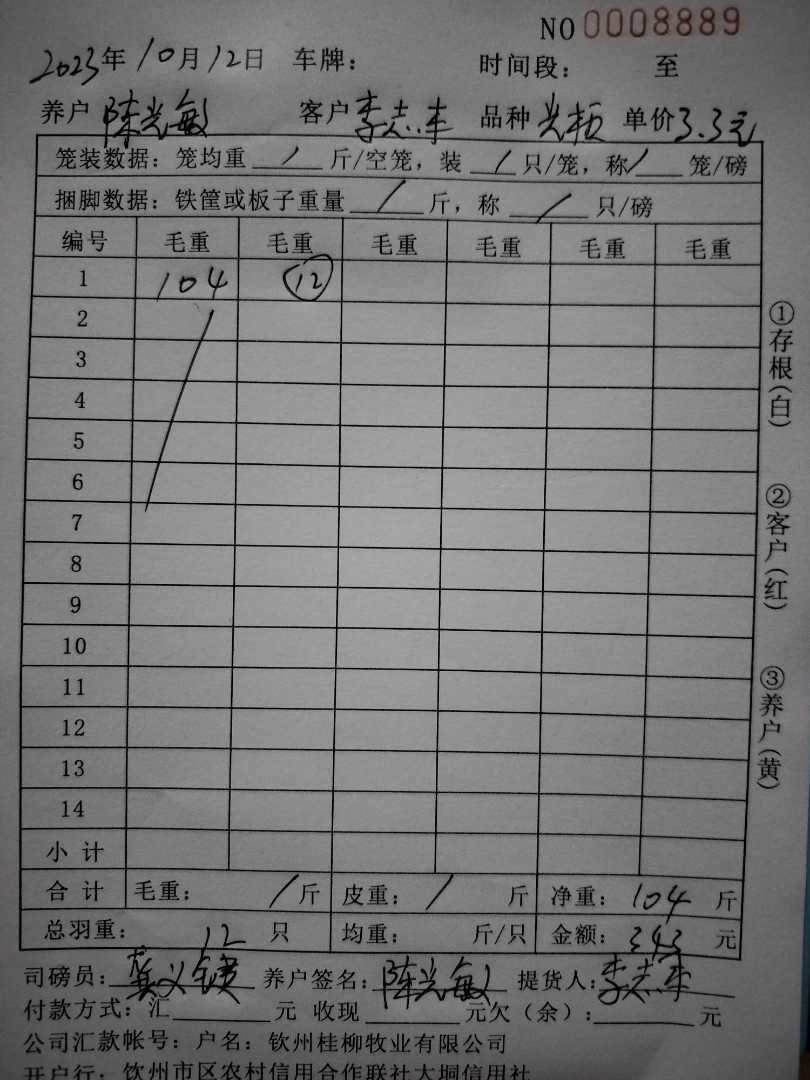 NO 0008889
2023年10月12日 车牌： 时间段： 至
养户 陈光敏 客户 李志丰 品种 光种 单价3.3元
笼装数据：笼均重 / 斤/空笼，装 / 只/笼，称 / 笼/磅
捆脚数据：铁筐或板子重量 / 斤，称 / 只/磅
编号 毛重 毛重 毛重 毛重 毛重 毛重
1 104 12
2
3
4
5
6
7
8
9
10
11
12
13
14
小计
合计 毛重： / 斤 皮重： / 斤 净重：104 斤
总羽重： 12 只 均重： 斤/只 金额：343 元
司磅员： 养户签名：陈光敏 提货人：李志丰
付款方式：汇 元 收现 元欠（余）： 元
公司汇款帐号：户名：钦州桂柳牧业有限公司
开户行：钦州市区农村信用合作联社大垌信用社
①存根（白）
②客户（红）
③养户（黄）